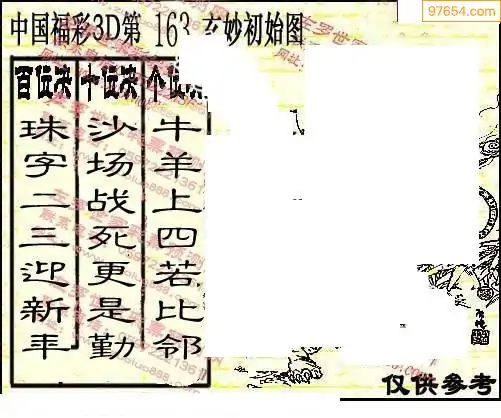 97654.com
中国福彩3D第 163 玄妙初始图
百位决
珠字二三迎新年
十位决
沙场战死更是勤
个位决
牛羊上四若比邻
仅供参考